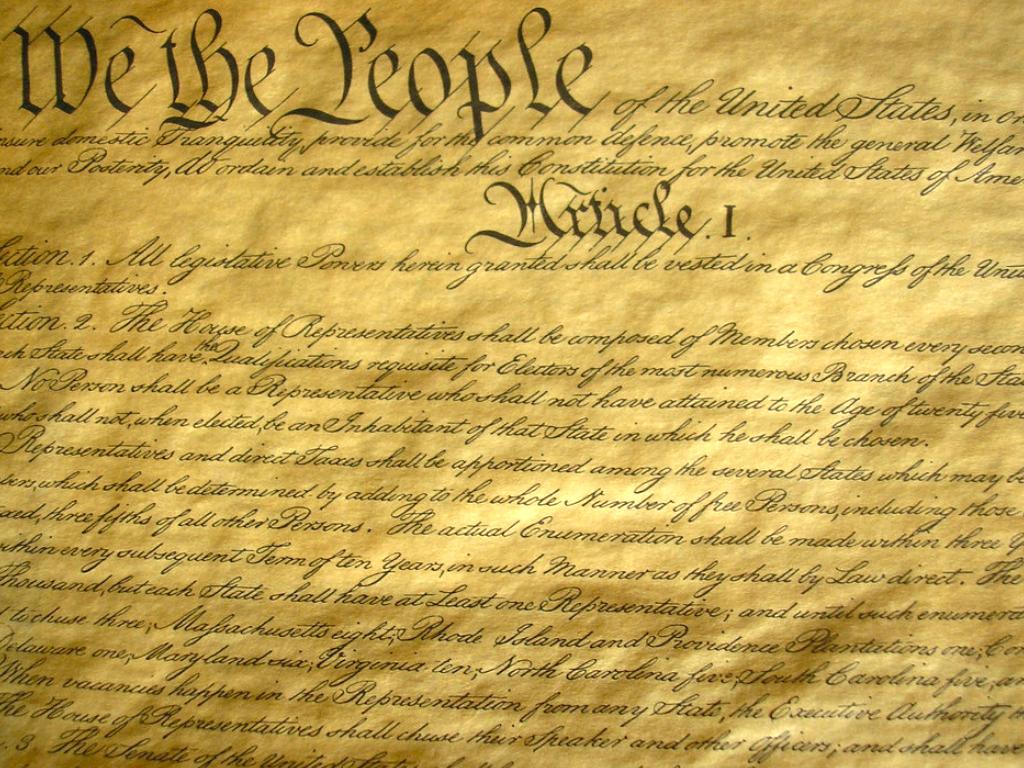 We the People of the United States, in or
nsure domestic Tranquility, provide for the common defence, promote the general Welfar
nd our Posterity, do ordain and establish this Constitution for the United States of Ame
Article. I.
ection. 1. All legislative Powers herein granted shall be vested in a Congress of the Unite
Representatives.
ection. 2. The House of Representatives shall be composed of Members chosen every secon
ch State shall have the Qualifications requisite for Electors of the most numerous Branch of the Sta
No Person shall be a Representative who shall not have attained to the Age of twenty five
who shall not, when elected, be an Inhabitant of that State in which he shall be chosen.
Representatives and direct Taxes shall be apportioned among the several States which may be
bers, which shall be determined by adding to the whole Number of free Persons, including those
axed, three fifths of all other Persons. The actual Enumeration shall be made within three Y
within every subsequent Term of ten Years, in such Manner as they shall by Law direct. The
Thousand, but each State shall have at Least one Representative; and until such enumerat
d to chuse three, Massachusetts eight, Rhode Island and Providence Plantations one, Con
Delaware one, Maryland six, Virginia ten, North Carolina five, South Carolina five, an
When vacancies happen in the Representation from any State, the Executive Authority
The House of Representatives shall chuse their Speaker and other Officers; and shall have
. 3 The Senate of the United States shall be